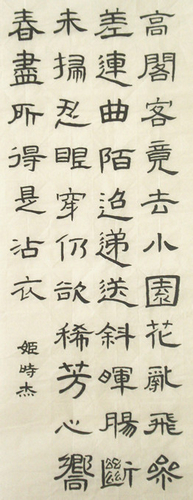 高閣客竟去小園花亂飛參
差連曲陌迢遞送斜暉腸斷
未掃忍眼穿仍欲稀芳心嚮
春盡所得是沾衣
姬時杰